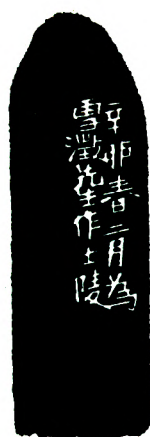 辛卯春二月為
雪澂先生作士陵